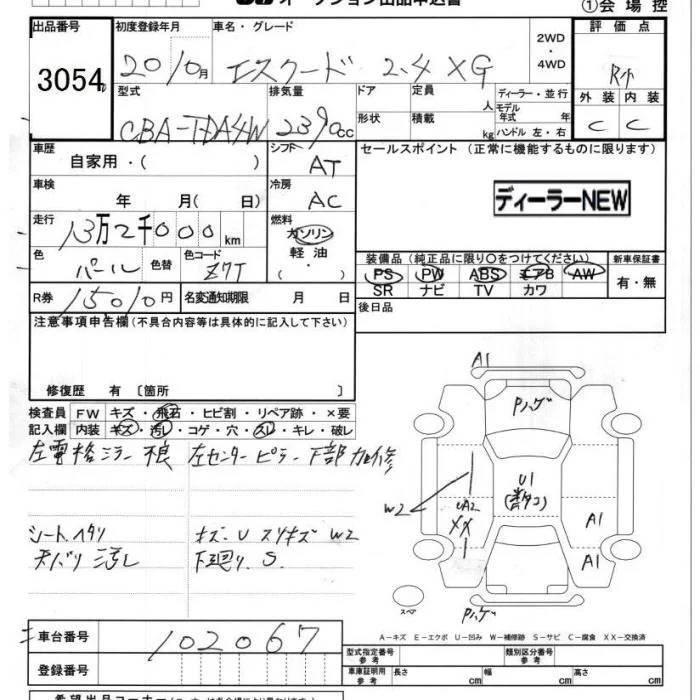 オークション出品申込書
①会場控
出品番号 初度登録年月 車名・グレード 2WD・4WD 評価点
3054 2010月 エスクード 2.4 XG R小
型式 排気量 ドア 定員 人 ディーラー・並行 外装 内装
CBA-TDA4W 2390cc 形状 積載 kg モデル年式 年 ハンドル 左・右 C C
車歴 シフト セールスポイント(正常に機能するものに限ります)
自家用・( ) AT
車検 冷房 ディーラーNEW
年 月( 日) AC
走行 燃料
13万2千000km ガソリン
色 色替 色コード 軽油・( ) 装備品(純正品に限り○をつけてください) 新車保証書
パール Z7T PS PW ABS エアB AW 有・無
SR ナビ TV カワ
R券 15010円 名変通知期限 月 日 後日品
注意事項申告欄(不具合内容等は具体的に記入して下さい)
修復歴 有 〔箇所 〕
検査員 FW キズ・飛石・ヒビ割・リペア跡・×要
記入欄 内装 キズ・汚れ・コゲ・穴・スレ・キレ・破レ
左電格ミラー不良 左センターピラー下部加修
シートヘタリ キズ.U スリキズ W2
天バリ汚レ 下廻り.S
A1
Pハゲ
U1
W2
UA2
XX
A1
A1
スペア
Pハゲ
A-キズ E-エクボ U-凹み W-補修跡 S-サビ C-腐食 XX-交換済
車台番号 102067 型式指定番号 参考 類別区分番号 参考
登録番号 車庫証明用 参考 長さ cm 幅 cm 高さ cm